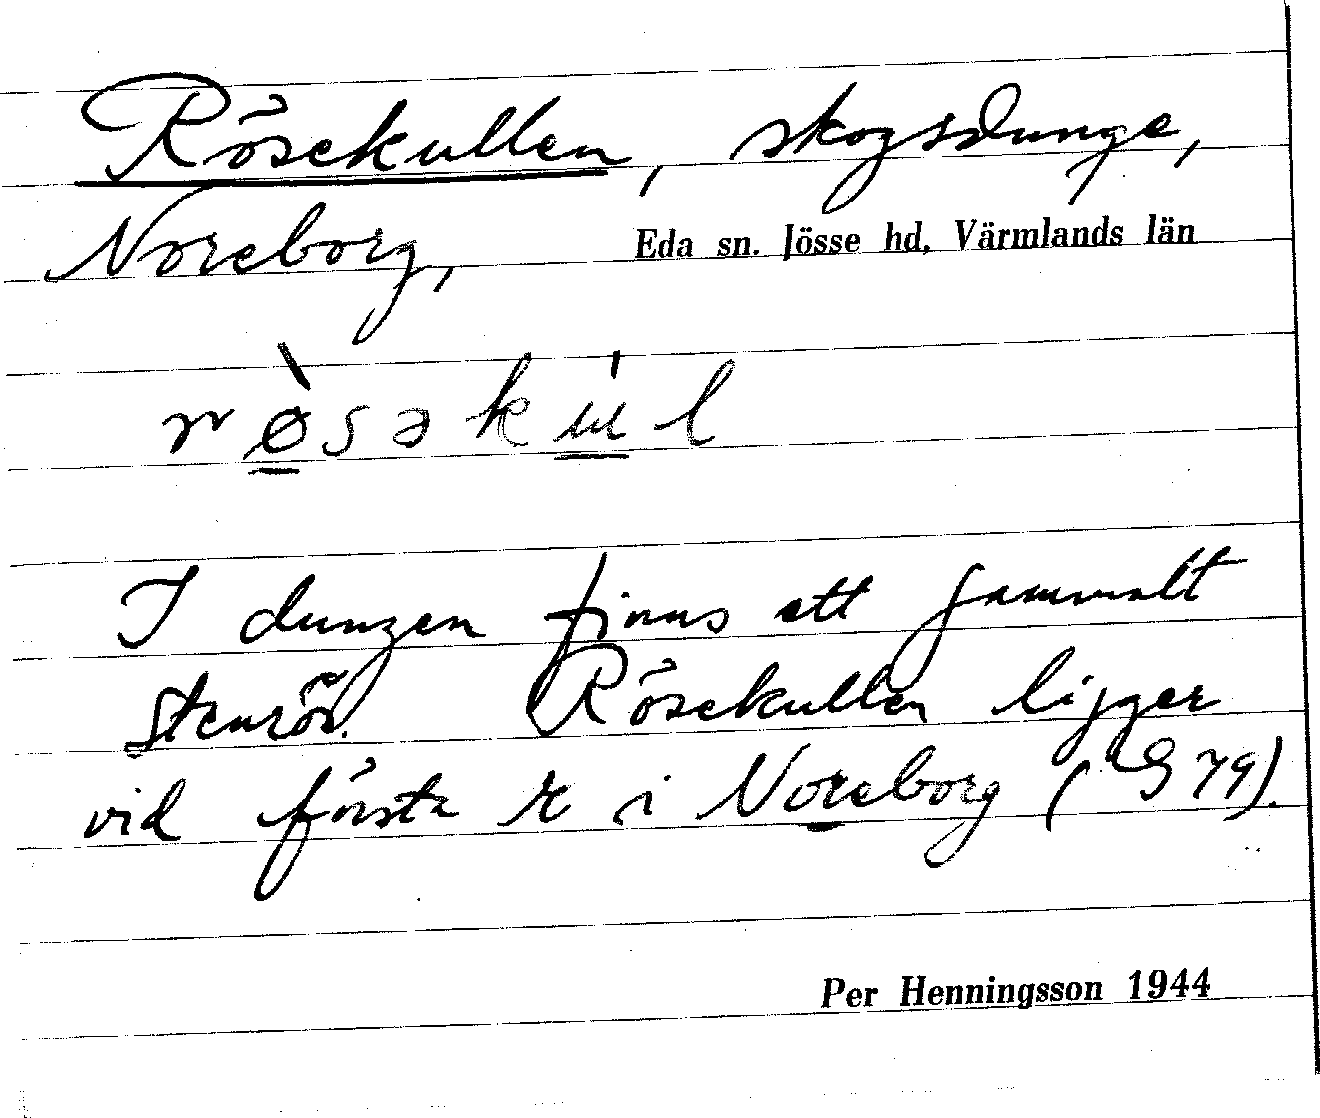 Rösekullen, skogsdunge,
Noreborg, Eda sn. Jösse hd, Värmlands län
rø̀səkúl
I dungen finns ett gammalt
stenrös. Rösekullen ligger
vid första r i Noreborg (G 79).
Per Henningsson 1944